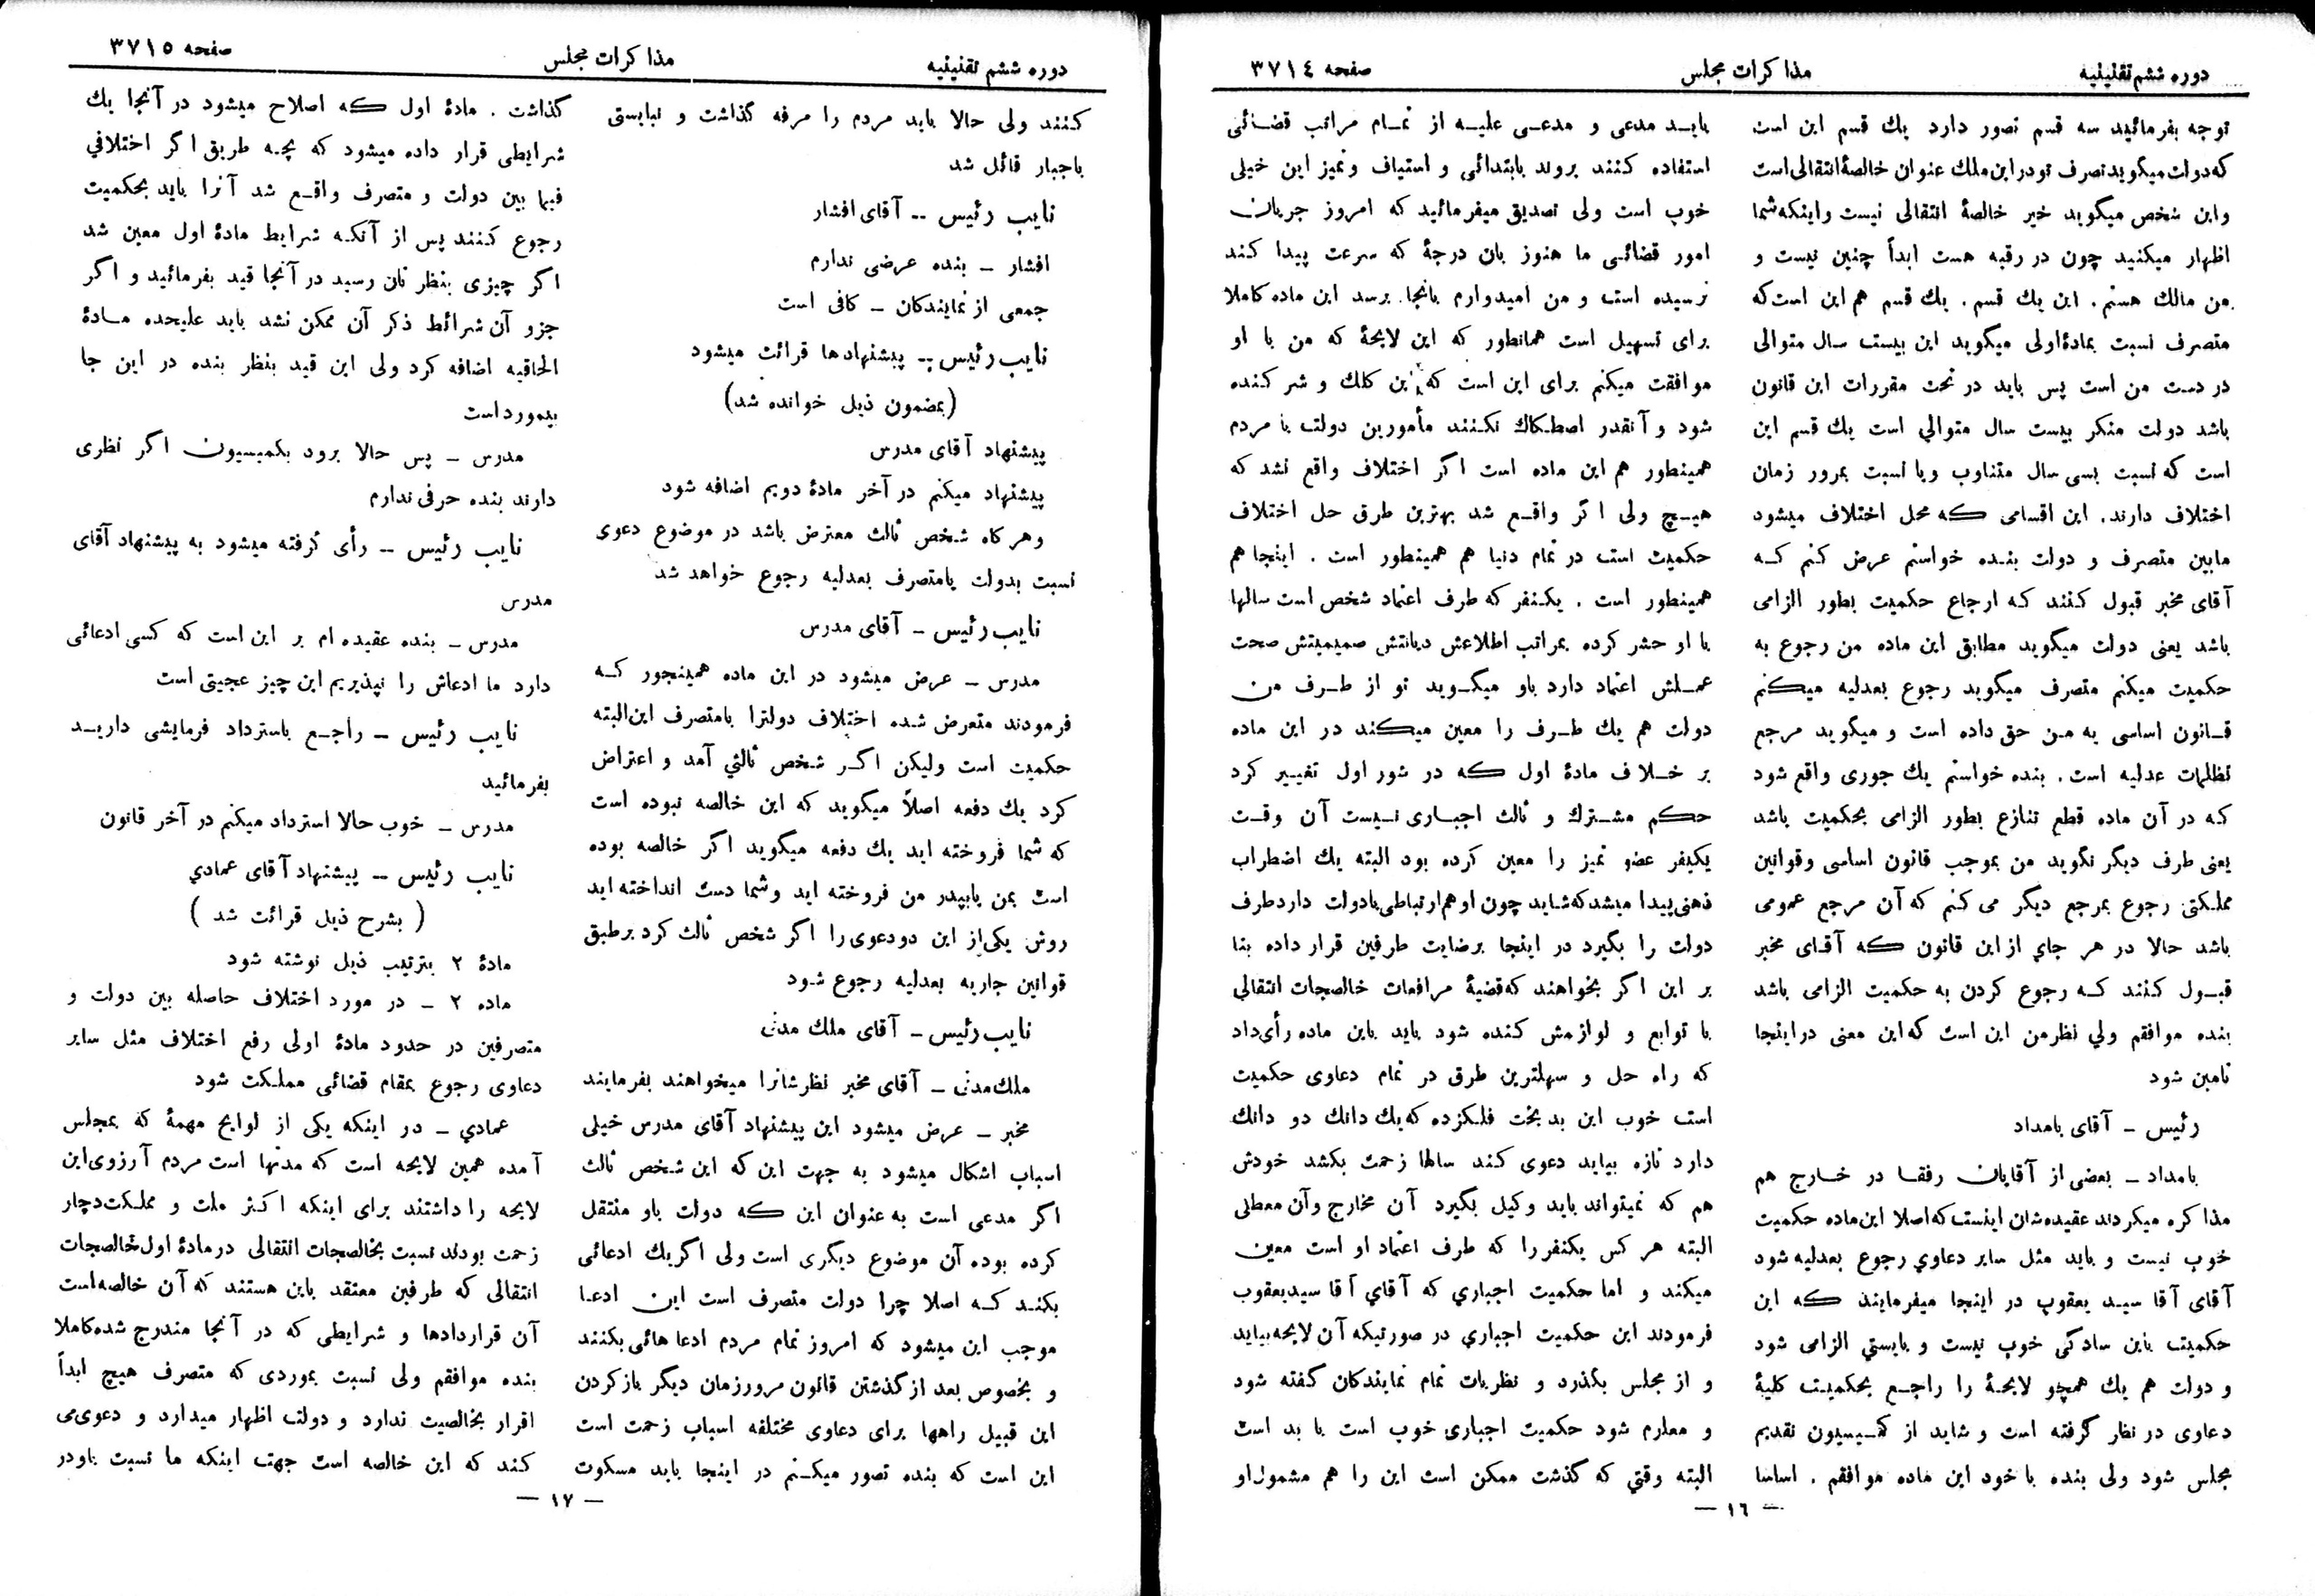 دوره ششم تقنینیه
مذاکرات مجلس
صفحه ۳۷۱۴
توجه بفرمائید سه قسم تصور دارد یك قسم این است
که دولت میگوید تصرف تو در این ملك عنوان خالصهٔ انتقالی است
و این شخص میگوید خیر خالصهٔ انتقالی نیست و اینکه شما
اظهار میکنید چون در رقبه هست ابداً چنین نیست و
من مالك هستم . این یك قسم . یك قسم هم این است که
متصرف نسبت بمادهٔ اولی میگوید این بیست سال متوالی
در دست من است پس باید در تحت مقررات این قانون
باشد دولت منکر بیست سال متوالی است یك قسم این
است که نسبت بسی سال متناوب و یا نسبت بمرور زمان
اختلاف دارند . این اقسامی که محل اختلاف میشود
مابین متصرف و دولت بنده خواستم عرض کنم که
آقای مخبر قبول کنند که ارجاع حکمیت بطور الزامی
باشد یعنی دولت میگوید مطابق این ماده من رجوع به
حکمیت میکنم متصرف میگوید رجوع بعدلیه میکنم
قانون اساسی به من حق داده است و میگوید مرجع
تظلمات عدلیه است . بنده خواستم یك جوری واقع شود
که در آن ماده قطع تنازع بطور الزامی بحکمیت باشد
یعنی طرف دیگر نگوید من بموجب قانون اساسی و قوانین
مملکتی رجوع بمرجع دیگر می کنم که آن مرجع عمومی
باشد حالا در هر جای از این قانون که آقای مخبر
قبول کنند که رجوع کردن به حکمیت الزامی باشد
بنده موافقم ولی نظر من این است که این معنی در اینجا
تامین شود
رئیس – آقای بامداد
بامداد – بعضی از آقایان رفقا در خارج هم
مذاکره میکردند عقیده شان اینست که اصلا این ماده حکمیت
خوب نیست و باید مثل سایر دعاوي رجوع بعدلیه شود
آقای آقا سید یعقوب در اینجا میفرمایند که این
حکمیت باین سادگی خوب نیست و بایستي الزامی شود
و دولت هم یك همچو لایحهٔ را راجع بحکمیت کلیهٔ
دعاوی در نظر گرفته است و شاید از کمیسیون تقدیم
مجلس شود ولی بنده با خود این ماده موافقم . اساسا
باید مدعی و مدعی علیه از تمام مراتب قضائی
استفاده کنند بروند بابتدائی و استیناف و تمیز این خیلی
خوب است ولی تصدیق میفرمائید که امروز جریان
امور قضائی ما هنوز بان درجهٔ که سرعت پیدا کند
نرسیده است و من امیدوارم بانجا برسد این ماده کاملا
برای تسهیل است همانطور که این لایحهٔ که من با او
موافقت میکنم برای این است که این کلك و شر کنده
شود و آنقدر اصطکاك نکنند مأمورین دولت با مردم
همینطور هم این ماده است اگر اختلاف واقع نشد که
هیچ ولی اگر واقع شد بهترین طرق حل اختلاف
حکمیت است در تمام دنیا هم همینطور است . اینجا هم
همینطور است . یکنفر که طرف اعتماد شخص است سالها
با او حشر کرده بمراتب اطلاعش دیانتش صمیمیتش صحت
عملش اعتماد دارد باو میگوید تو از طرف من
دولت هم یك طرف را معین میکند در این ماده
بر خلاف مادهٔ اول که در شور اول تغییر کرد
حکم مشترك و ثالث اجباری نیست آن وقت
یکنفر عضو تمیز را معین کرده بود البته یك اضطراب
ذهنی پیدا میشد که شاید چون او هم ارتباطی با دولت دارد طرف
دولت را بگیرد در اینجا برضایت طرفین قرار داده بنا
بر این اگر بخواهند که قضیهٔ مرافعات خالصجات انتقالی
با توابع و لوازمش کنده شود باید باین ماده رأی داد
که راه حل و سهلترین طرق در تمام دعاوی حکمیت
است خوب این بد بخت فلکزده که یك دانك دو دانك
دارد تازه بیاید دعوی کند سالها زحمت بکشد خودش
هم که نمیتواند باید وکیل بگیرد آن مخارج و آن معطلی
البته هر کس یکنفر را که طرف اعتماد او است معین
میکند و اما حکمیت اجباري که آقاي آقا سید یعقوب
فرمودند این حکمیت اجباري در صورتیکه آن لایحه بیاید
و از مجلس بگذرد و نظریات تمام نمایندکان گفته شود
و معلوم شود حکمیت اجباری خوب است یا بد است
البته وقتي که گذشت ممکن است این را هم مشمول او
— ۱٦ —
دوره ششم تقنینیه
مذاکرات مجلس
صفحه ۳۷۱٥
کنند ولی حالا باید مردم را مرفه گذاشت و نبایستی
باجبار قائل شد
نایب رئیس -- آقای افشار
افشار – بنده عرضی ندارم
جمعی از نمایندکان – کافی است
نایب رئیس – پیشنهادها قرائت میشود
(بمضمون ذیل خوانده شد)
پیشنهاد آقای مدرس
پیشنهاد میکنم در آخر مادهٔ دویم اضافه شود
و هر کاه شخص ثالث معترض باشد در موضوع دعوی
نسبت بدولت یا متصرف بعدلیه رجوع خواهد شد
نایب رئیس – آقای مدرس
مدرس – عرض میشود در این ماده همینجور که
فرمودند متعرض شده اختلاف دولترا بامتصرف این البته
حکمیت است ولیکن اگر شخص ثالثي آمد و اعتراض
کرد یك دفعه اصلاً میگوید که این خالصه نبوده است
که شما فروخته اید یك دفعه میگوید اگر خالصه بوده
است بمن یا بپدر من فروخته اید و شما دست انداخته اید
روش یکی از این دو دعوی را اگر شخص ثالث کرد بر طبق
قوانین جاریه بعدلیه رجوع شود
نایب رئیس – آقای ملك مدنی
ملك مدنی – آقای مخبر نظرشانرا میخواهند بفرمایند
مخبر – عرض میشود این پیشنهاد آقای مدرس خیلی
اسباب اشکال میشود به جهت این که این شخص ثالث
اگر مدعی است به عنوان این که دولت باو منتقل
کرده بوده آن موضوع دیگری است ولی اگر یك ادعائی
بکند که اصلا چرا دولت متصرف است این ادعا
موجب این میشود که امروز تمام مردم ادعا هائی بکنند
و بخصوص بعد از گذشتن قانون مرور زمان دیگر باز کردن
این قبیل راهها برای دعاوی مختلفه اسباب زحمت است
این است که بنده تصور میکنم در اینجا باید مسکوت
گذاشت . مادهٔ اول که اصلاح میشود در آنجا یك
شرایطی قرار داده میشود که بچه طریق اگر اختلافي
فیما بین دولت و متصرف واقع شد آنرا باید بحکمیت
رجوع کنند پس از آنکه شرایط مادهٔ اول معین شد
اگر چیزی بنظر تان رسید در آنجا قید بفرمائید و اگر
جزو آن شرائط ذکر آن ممکن نشد باید علیحده مادهٔ
الحاقیه اضافه کرد ولی این قید بنظر بنده در این جا
بیمورد است
مدرس – پس حالا برود بکمیسیون اگر نظری
دارند بنده حرفی ندارم
نایب رئیس -- رأی گرفته میشود به پیشنهاد آقای
مدرس
مدرس – بنده عقیده ام بر این است که کسی ادعائی
دارد ما ادعاش را نپذیریم این چیز عجیبی است
نایب رئیس – راجع باسترداد فرمایشی دارید
بفرمائید
مدرس – خوب حالا استرداد میکنم در آخر قانون
نایب رئیس -- پیشنهاد آقای عمادي
( بشرح ذیل قرائت شد )
مادهٔ ۲ بترتیب ذیل نوشته شود
ماده ۲ – در مورد اختلاف حاصله بین دولت و
متصرفین در حدود مادهٔ اولی رفع اختلاف مثل سایر
دعاوی رجوع بمقام قضائی مملکت شود
عمادي – در اینکه یکی از لوایح مهمهٔ که بمجلس
آمده همین لایحه است که مدتها است مردم آرزوی این
لایحه را داشتند برای اینکه اکثر ملت و مملکت دچار
زحمت بودند نسبت بخالصجات انتقالی در مادهٔ اول خالصجات
انتقالی که طرفین معتقد باین هستند که آن خالصه است
آن قراردادها و شرایطی که در آنجا مندرج شده کاملا
بنده موافقم ولی نسبت بموردی که متصرف هیچ ابداً
اقرار بخالصیت ندارد و دولت اظهار میدارد و دعوی می
کند که این خالصه است جهت اینکه ما نسبت باو در
— ۱۷ —